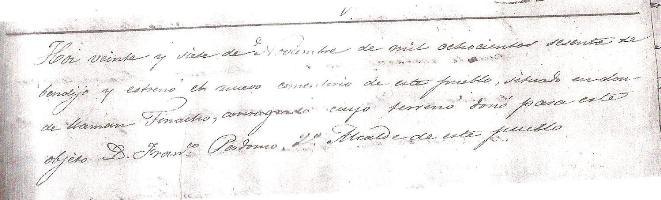 Hoi veinte y siete de Diciembre de mil ochocientos sesenta se
bendijo y estrenó el nuevo cementerio de este pueblo, situado en don-
de llaman cuyo terreno donó para este
objeto D. Franco Perdomo, Alcalde de este pueblo.